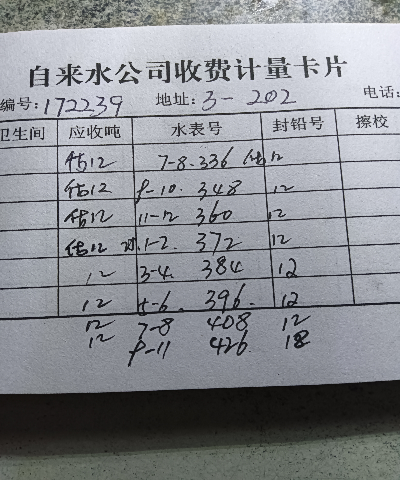 自来水公司收费计量卡片
编号:172239 地址:3-202 电话:
卫生间 应收吨 水表号 封铅号 擦校
估12 7-8. 336 估12
估12 9-10. 348 12
估12 11-12 360 12
估12 1-2. 372 12
12 3-4. 384 12
12 5-6. 396. 12
12 7-8 408 12
12 9-11 426. 18